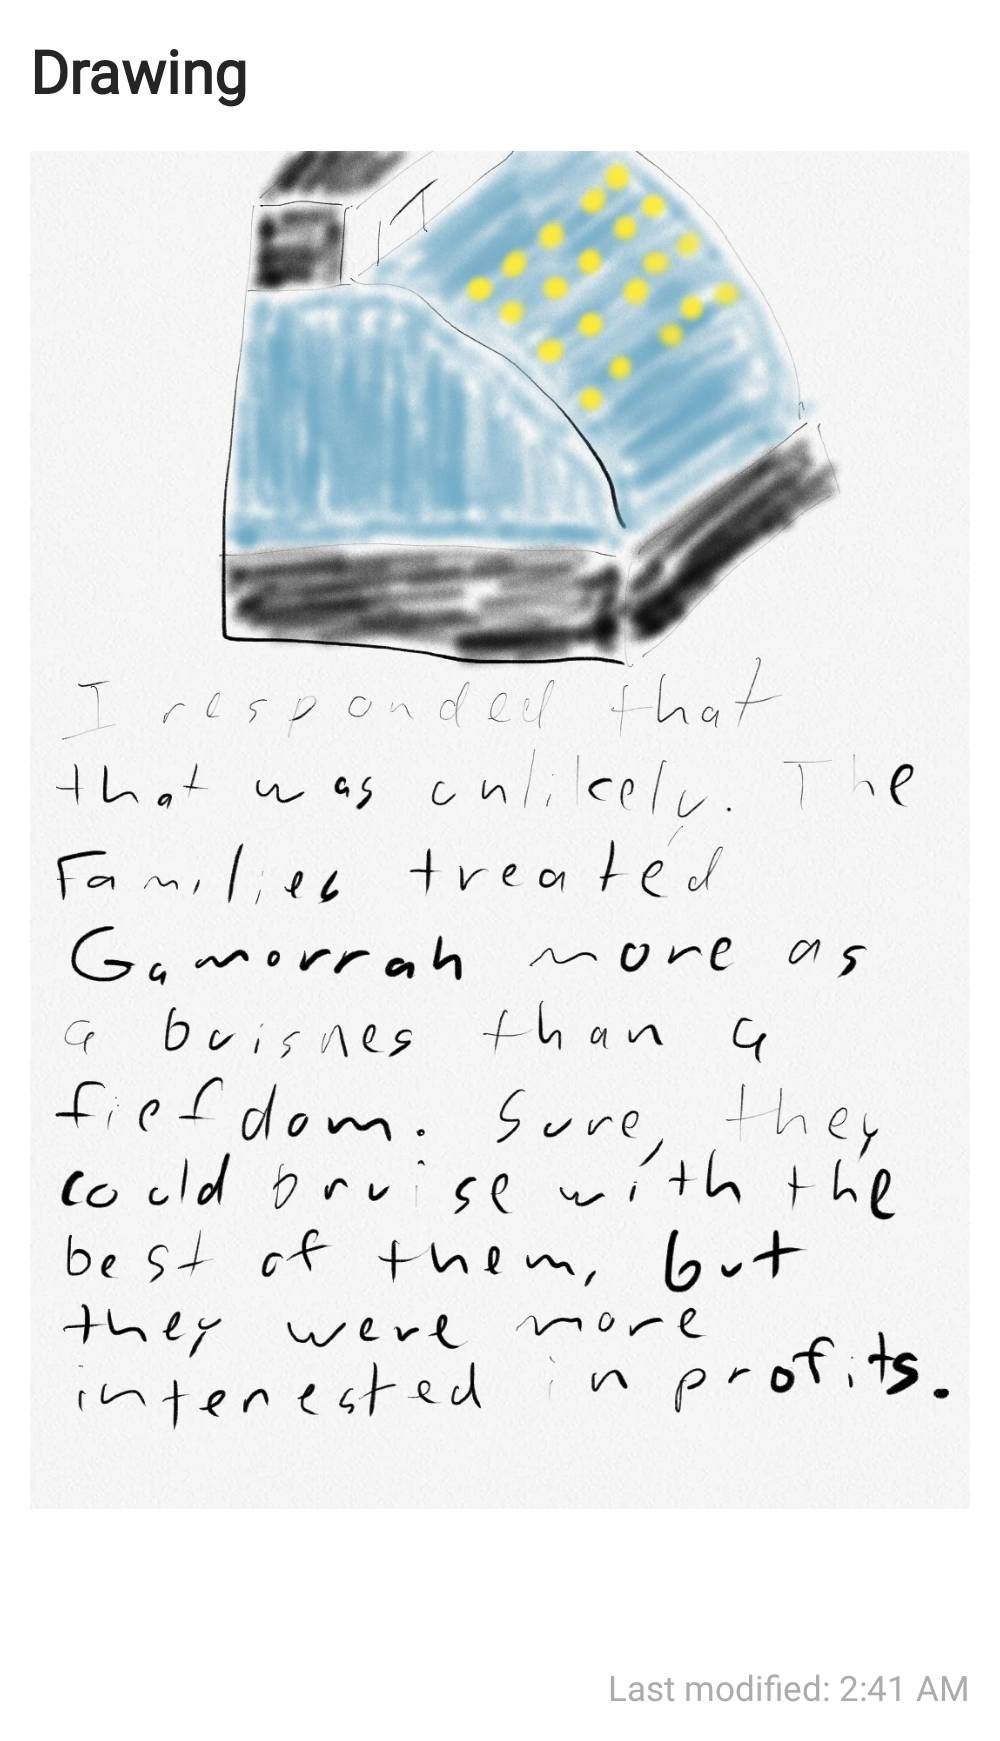 Drawing
I responded that
that was unlikely. The
Families treated
Gamorrah more as
a buisnes than a
fiefdom. Sure, they
could bruise with the
best of them, but
they were more
interested in profits.
Last modified: 2:41 AM